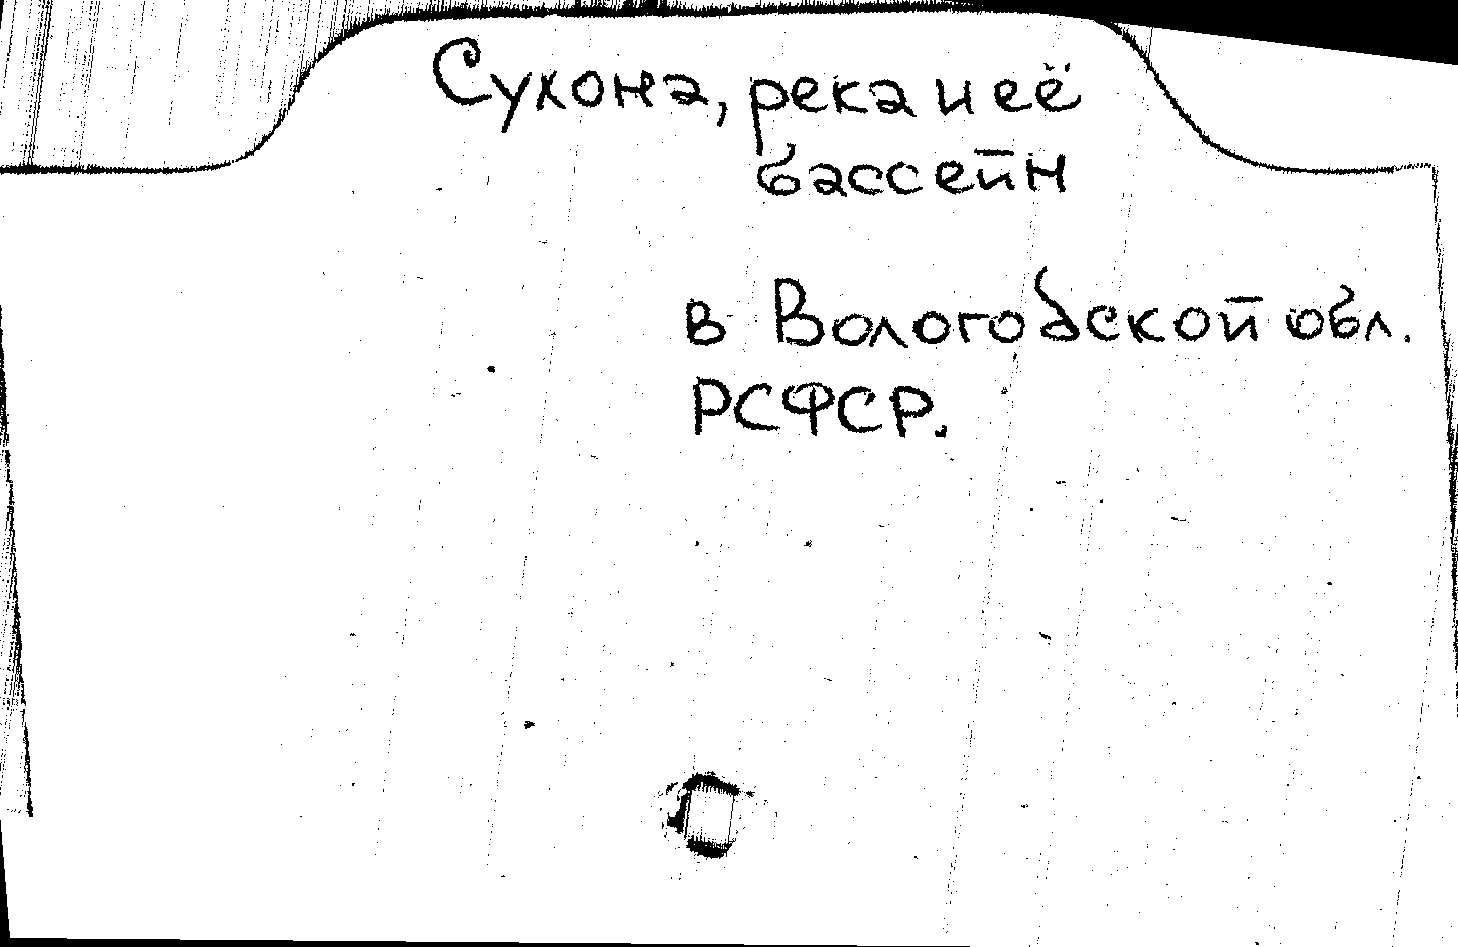 Сухона, река и её
бассейн
в Вологодской обл.
РСФСР.